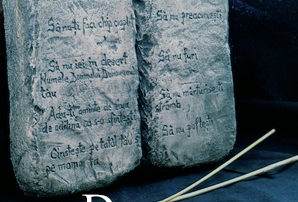 Să nu-ți faci chip cioplit
Să nu iei în deșert
Numele Domnului Dumnezeu
tău
Adu-ți aminte de ziua
de odihnă ca s-o sfințești
Cinstește pe tatăl tău și
pe mama ta
Să nu precurvești
Să nu furi
Să nu mărturisești
strâmb
Să nu poftești